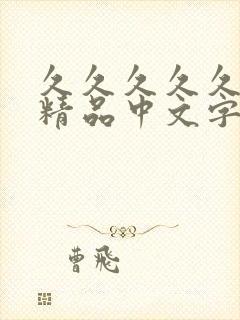 久久久久久
精品中文字
曹飛